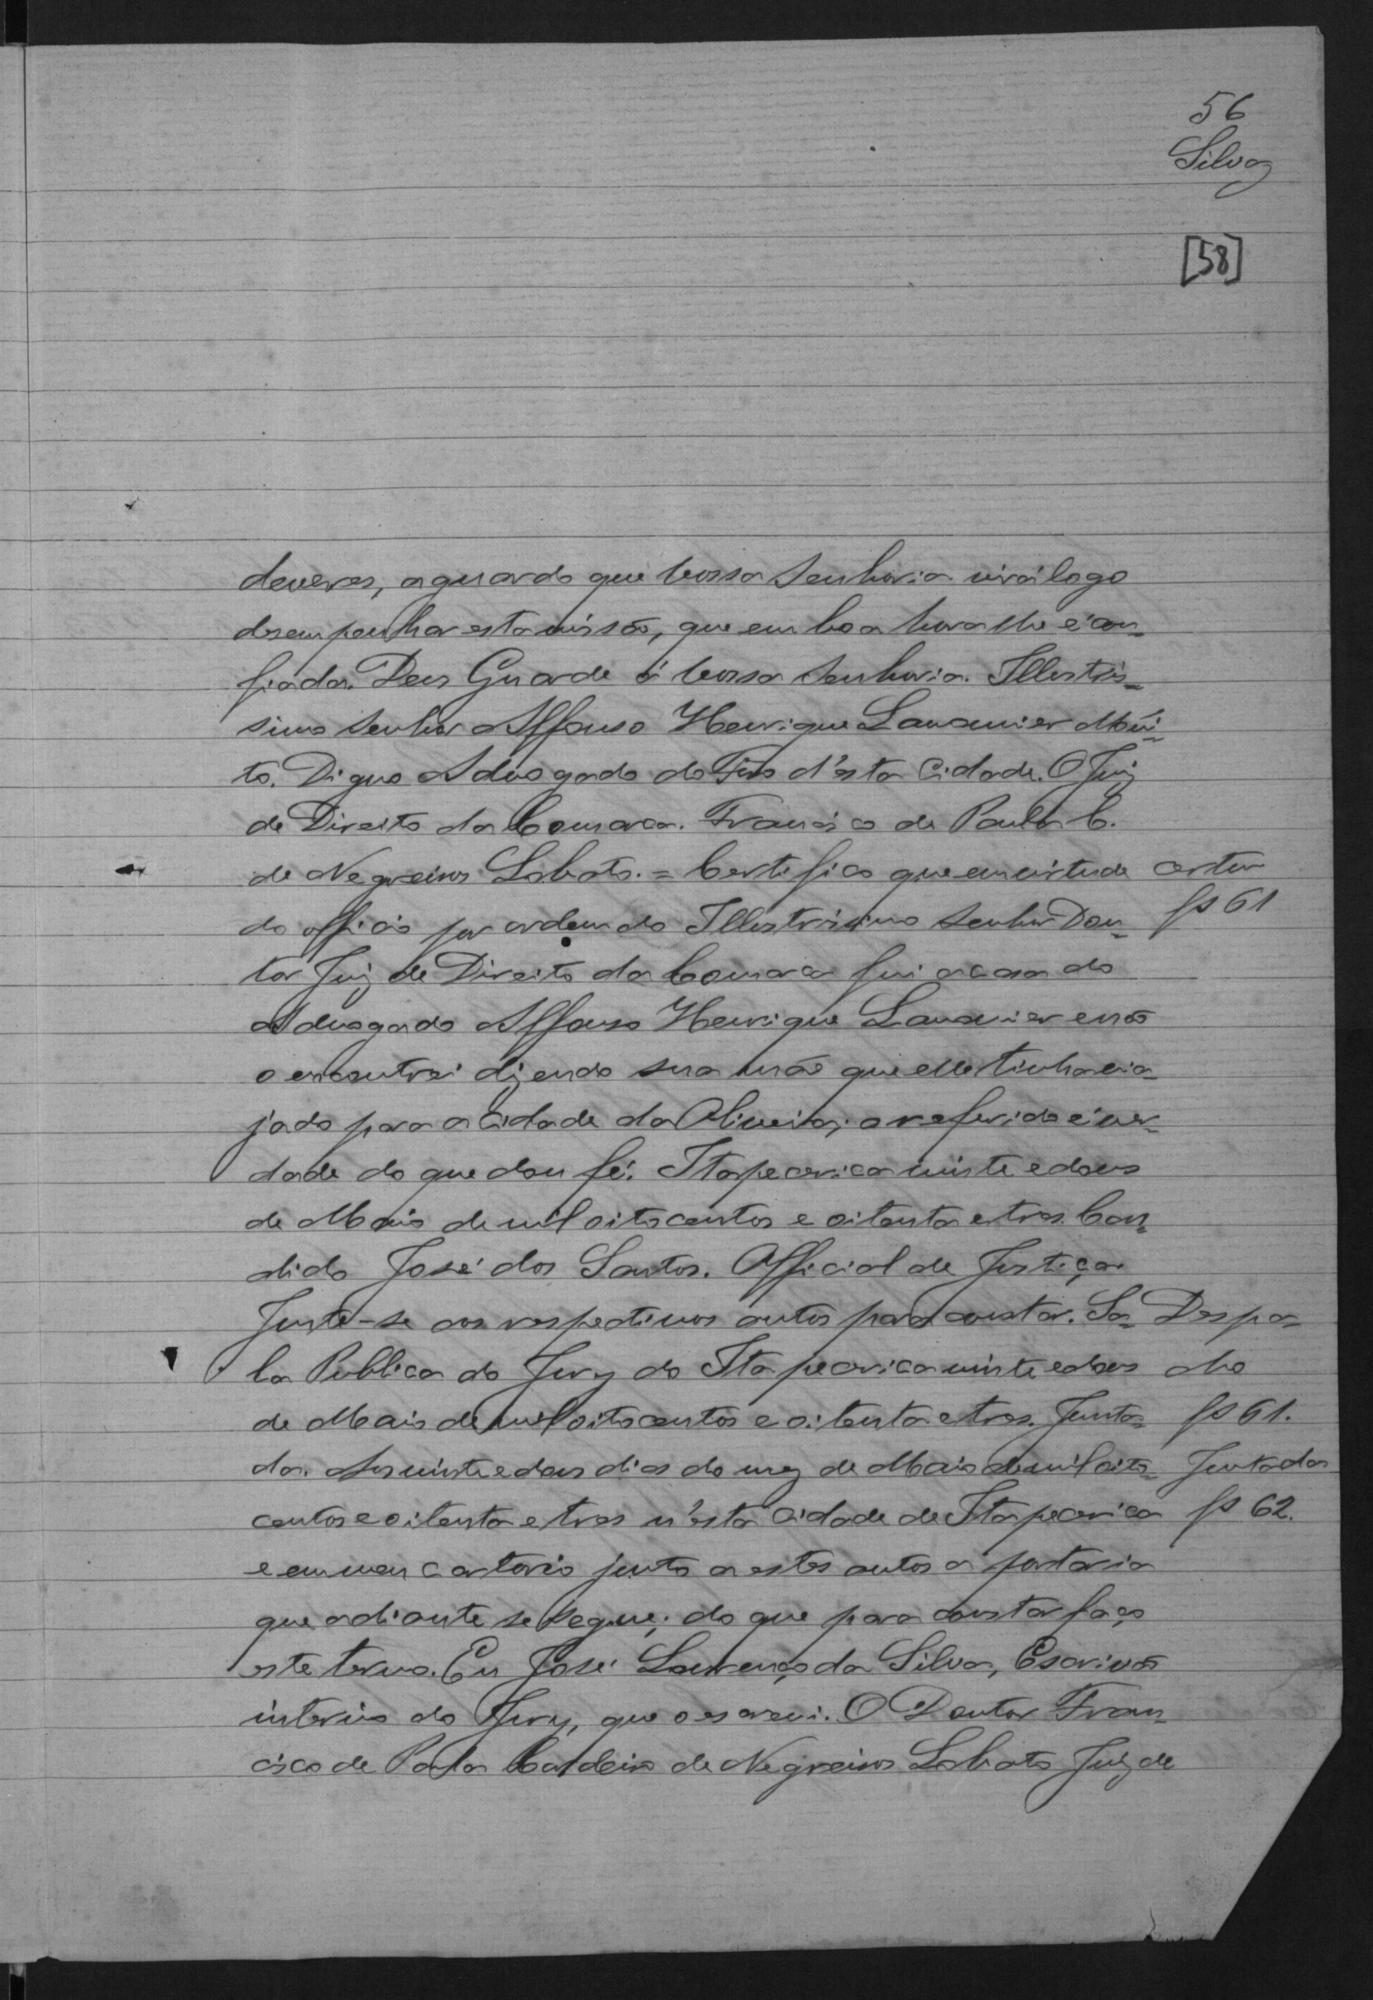 56
Silva
[58]
deveres, aguardo que Vossa Senhoria virá logo
desempenhar esta missão, que em boa hora lhe é con=
fiada. Deus Guarde á Vossa Senhoria. Illustris=
simo Senhor Affonso Henrique Lamounier Mui=
to. Digno Advogado do Fôro d'esta Cidade. O Juiz
de Direito da Comarca. Francisco de Paula C.
de Negreiros Lobato. = Certifico que em virtude
do officio por ordem do Illustrissimo Senhor Dou=
tor Juiz de Direito da Comarca fui a casa do
Advogado Affonso Henrique Lamounier e não
o encontrei dizendo sua mãe que elle tinha via=
jado para a Cidade da Oliveira; o referido é ver=
dade do que dou fé. Itapecerica vinte e dous
de Maio de mil oitocentos e oitenta e tres. Can=
dido José dos Santos. Official de Justiça.
Junte-se aos respectivos autos para constar. Sa=
la Publica do Jury do Itapecerica vinte e dous
de Maio de mil oitocentos e oitenta e tres. Junta=
da. Aos vinte e dous dias do mez de Maio de mil oito=
centos e oitenta e tres n'esta Cidade de Itapecerica
e em meu cartorio junto a estes autos a portaria
que adiante se segue; do que para constar faço
este termo. Eu José Lourenço da Silva, Escrivão
interino do Jury, que o escrevi. O Doutor Fran=
cisco de Paula Cordeiro de Negreiros Lobato Juiz de
fs 61
Despa=
cho
fs 61.
Juntada
fs 62.